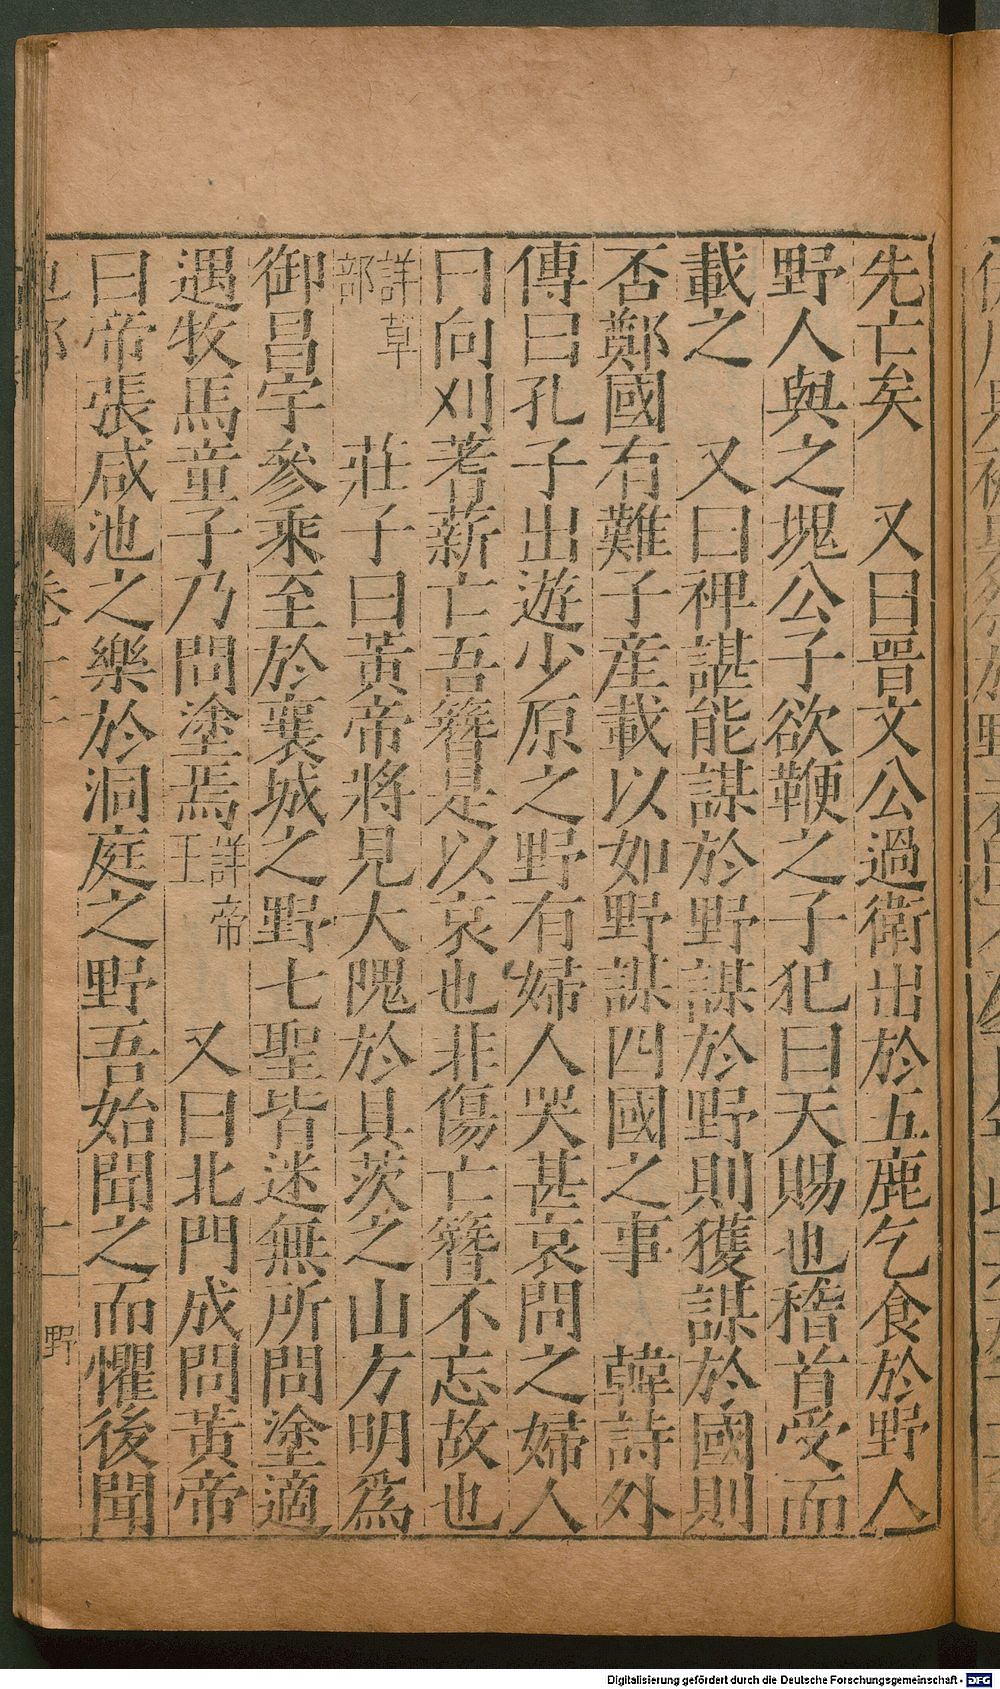 先亡矣　又曰晉文公過衛出於五鹿乞食於野人
野人與之塊公子欲鞭之子犯曰天賜也稽首受而
載之　又曰裨諶能謀於野謀於野則獲謀於國則
否鄭國有難子產載以如野謀四國之事　韓詩外
傳曰孔子出遊少原之野有婦人哭甚哀問之婦人
曰向刈蓍薪亡吾簪是以哀也非傷亡簪不忘故也
詳草部　莊子曰黃帝將見大隗於具茨之山方明為
御昌宇參乘至於襄城之野七聖皆迷無所問塗適
遇牧馬童子乃問塗焉詳帝王　又曰北門成問黃帝
曰帝張咸池之樂於洞庭之野吾始聞之而懼後聞
卷十
野
Digitalisierung gefördert durch die Deutsche Forschungsgemeinschaft - DFG